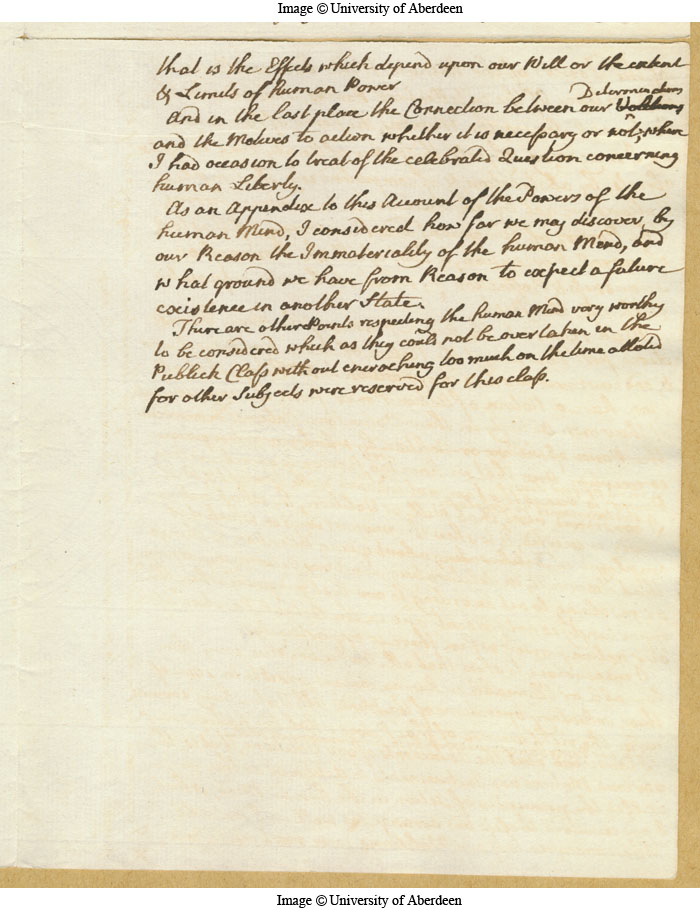 Image © University of Aberdeen
that is the Effects which depend upon our Will or the extent
& Limits of human Power
Determinations
And in the last place the Connection between our Volitions
and the Motives to action whether it is necessary or not; when
I had occasion to treat of the celebrated Question concerning
human Liberty.
As an Appendix to this Account of the Powers of the
human Mind, I considered how far we may discover, by
our Reason the Immateriality of the human Mind, and
what ground we have from Reason to expect a future
existence in another State.
There are other Points respecting the human Mind very worthy
to be considered which as they could not be overtaken in the
Publick Class without encroaching too much on the time alloted
for other Subjects were reserved for this class.
Image © University of Aberdeen